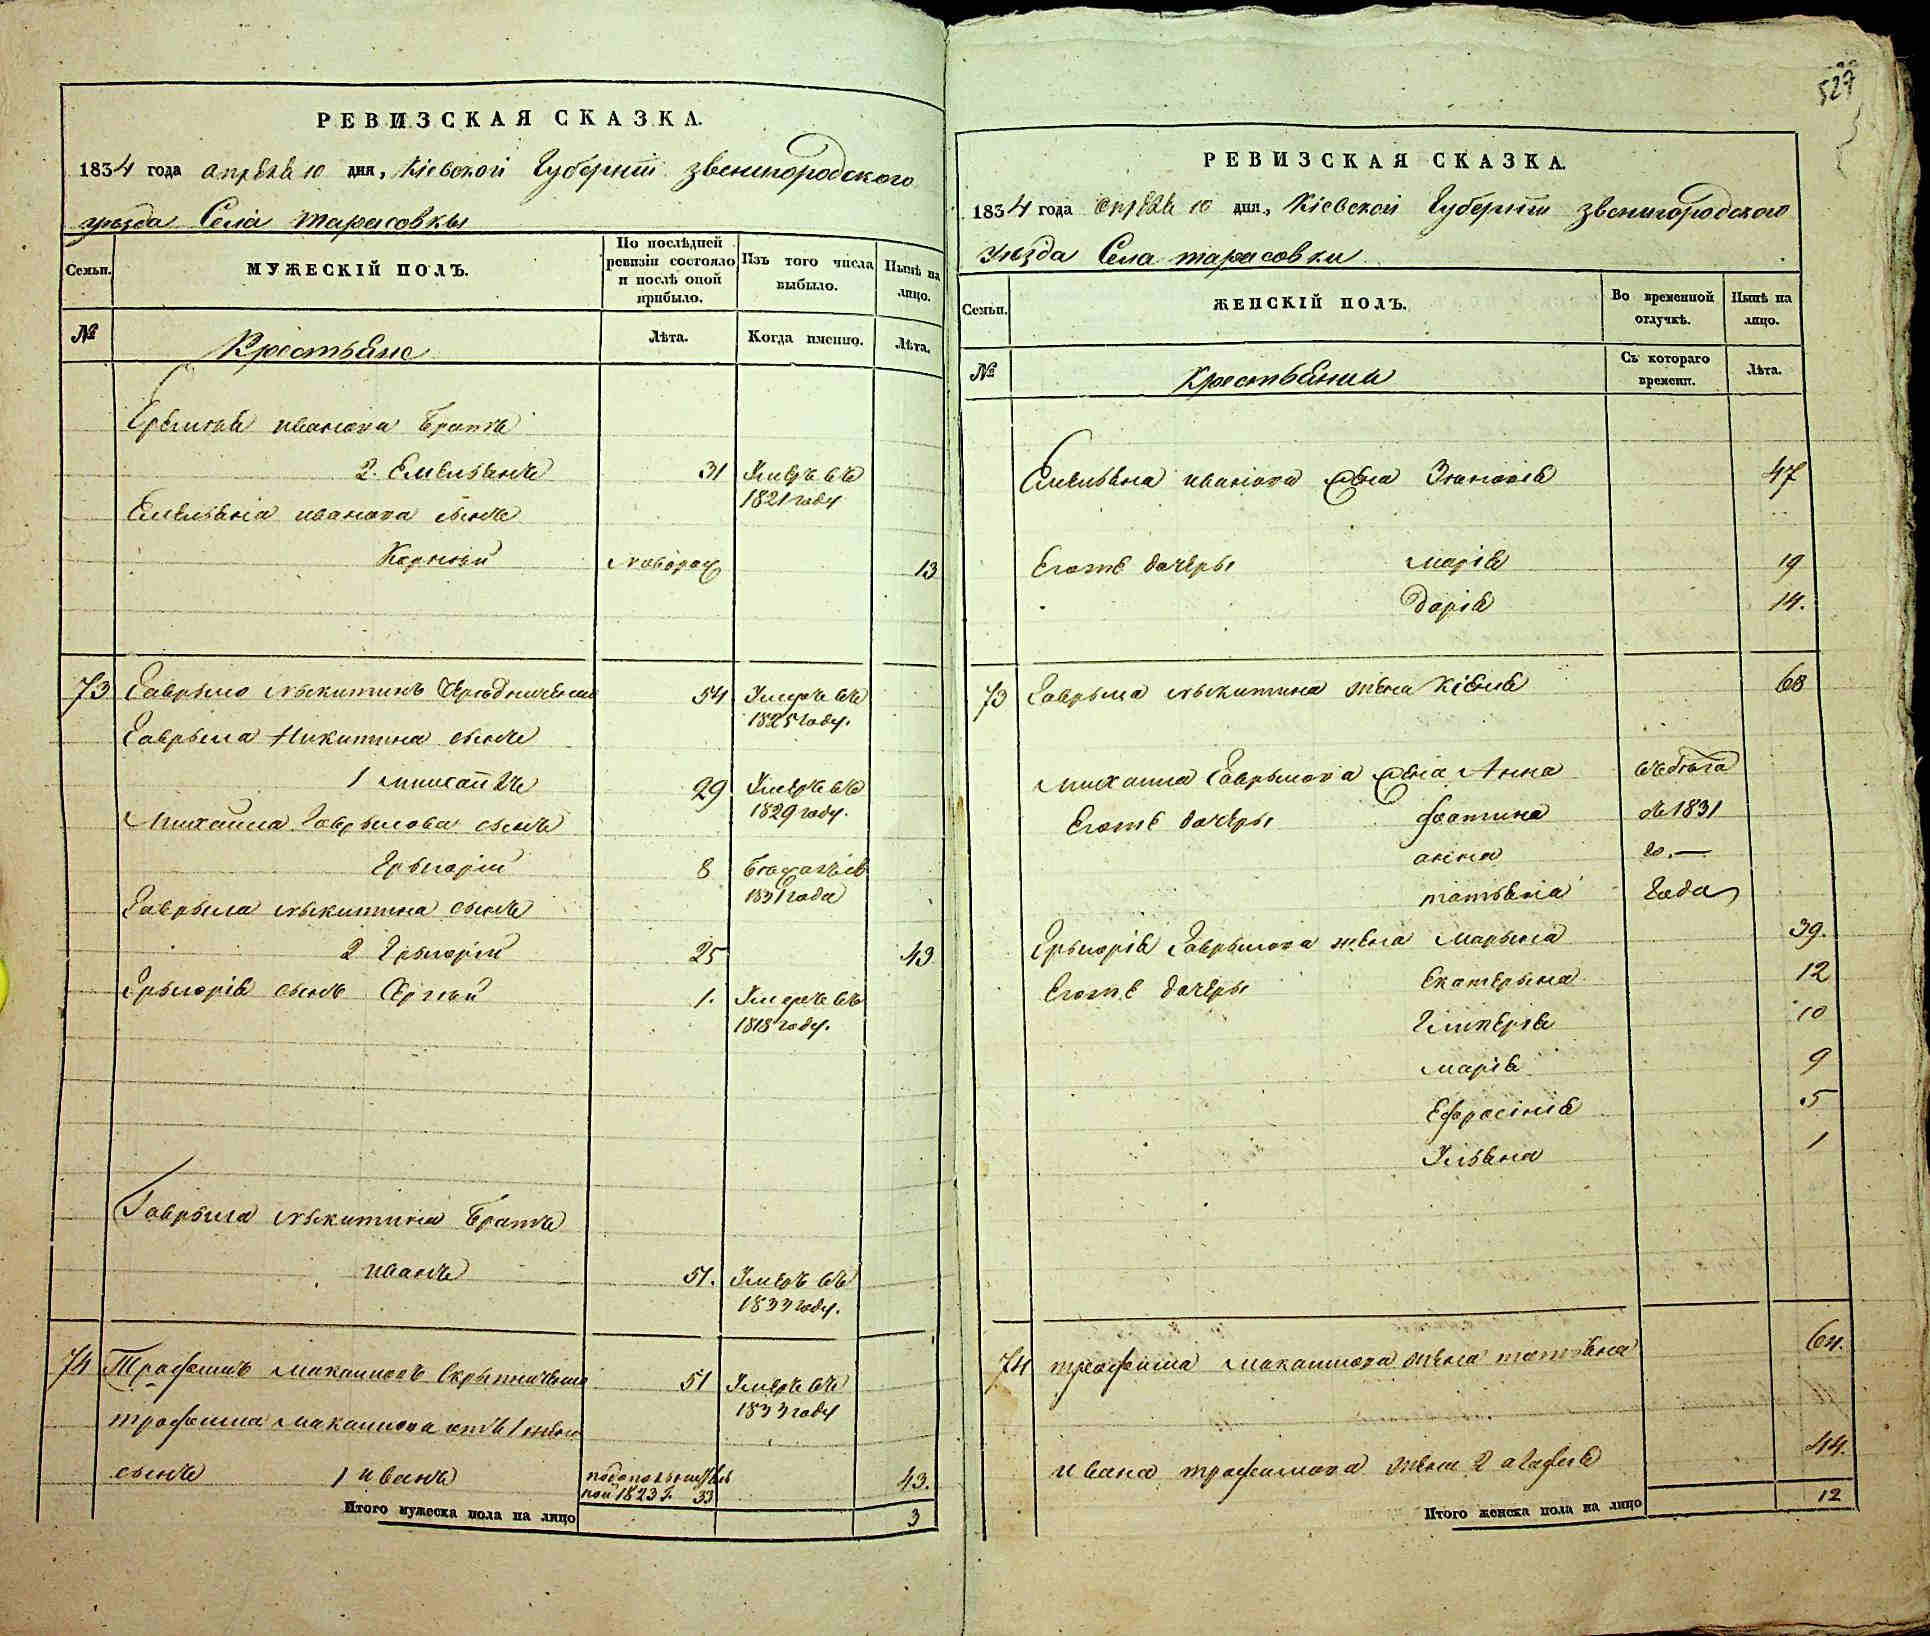 РЕВИЗСКАЯ СКАЗКА.
1834 года апреля 10 дня, Кіевской Губерніи звенигородского
уезда Села тарасовкы
Семьи.
МУЖЕСКІЙ ПОЛЪ.
По послѣдней ревизіи состояло и послѣ оной прибыло.
Изъ того числа выбыло.
Нынѣ на лицо.
№
Крестьяне
Лѣта.
Когда именно.
Лѣта.
иванова братъ
2. Емельянъ 31 Умеръ въ
1821 году
Емельяна иванова сынъ
Корнѣй 13
73 Гаврыло Мыкитинъ 54 Умеръ въ
1825 году.
Гаврыла Никитина сынъ
1 михайлъ 29 Умеръ въ
1829 году.
Михаила Гаврылова сынъ
Грыгорій 8
1831 года
Гаврыла Мыкитина сынъ
2 Грыгорій 25 43
Грыгорія сынъ Сергѣй 1. Умеръ въ
1818 году.
Гаврыла Мыкитина братъ
иванъ 51. Умеръ въ
1833 году.
74 Трофимъ Макаимовъ 51 Умеръ въ
1833 году
трофима макаимова отъ 1 жены
сынъ 1 иванъ 43.
1823 г. 33
Итого мужеска пола на лицо 3
527
РЕВИЗСКАЯ СКАЗКА.
1834 года апреля 10 дня, Кіевской Губерніи звенигородского
уѣзда Села тарасовки
Семьи.
ЖЕНСКІЙ ПОЛЪ.
Во временной отлучкѣ.
Нынѣ на лицо.
№
Крестьянии
Съ котораго времени.
Лѣта.
Емельяна иванова жена Зѣновія 47
Егоже дочеры марія 19
дарія 14.
73 Гаврыла Мыкитина жена Ксенія 68
михаила Гаврылова жена Анна въ бѣга
Егоже дочеры фотина 1831
анна го.—
татьяна года
Грыгорія Гаврылова жена Марына 39.
Егоже дочеры Екатерына 12
Гликерія 10
марія 9
Ефросинія 5
Ульяна 1
74 трофима Макаимова жена татьяна 64.
ивана трофимова жена 2 агафія 44.
Итого женска пола на лицо 12